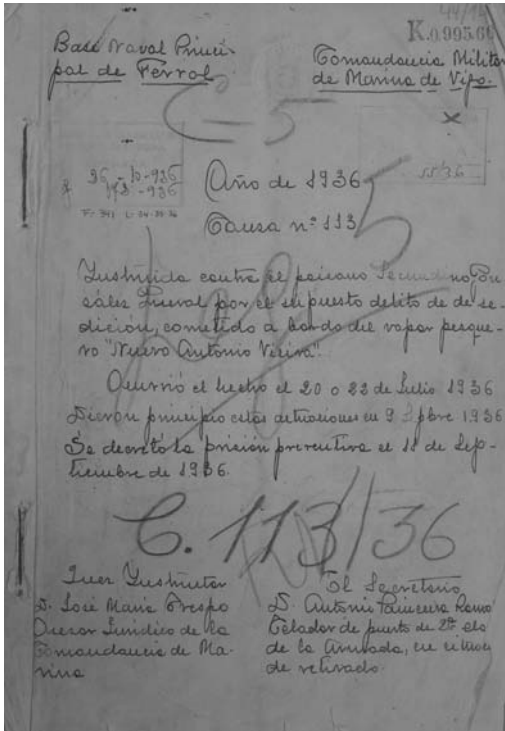 K.0.995.66
Base Naval Princi-
pal de Ferrol
Comandancia Militar
de Marina de Vigo.
C-5
Año de 1936
Causa nº 113
Instruida contra el paisano
por el supuesto delito de de se-
dición, cometido a bordo del vapor pesque-
ro "Nuevo Antonio Vieira".
Ocurrió el hecho el 20 o 22 de Julio 1936
Dieron principio estas actuaciones en 9 Spbre 1936
Se decretó la prisión preventiva el 11 de Sep-
tiembre de 1936.
C. 113/36
Juez Instructor
D. José María Crespo
Jurídico de la
Comandancia de Ma-
rina
El Secretario
D. Antonio
Celador de puerto de 2ª
de la Armada, en
de retirado.